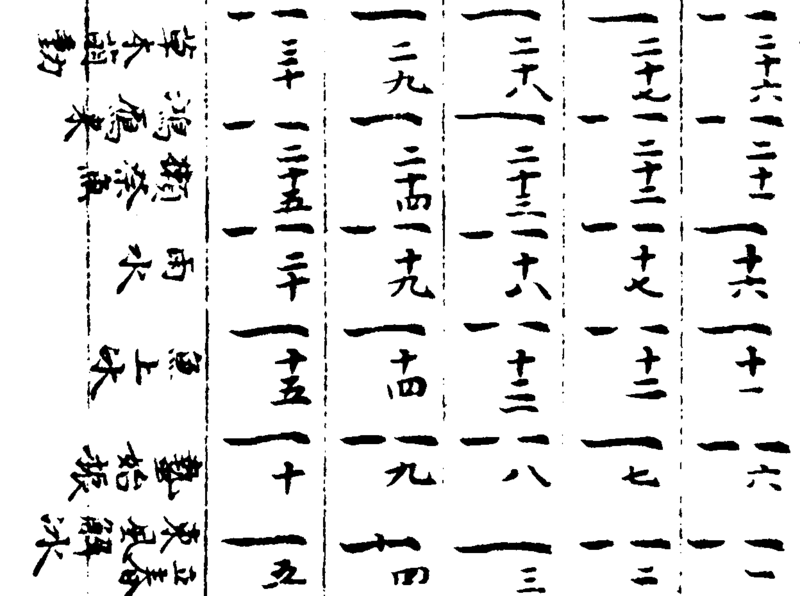 二十六 二十七 二十八 二九 三十 草木萌動
二十一 二十二 二十三 二十四 二十五 鴻鴈來 獺祭魚
十六 十七 十八 十九 二十 雨水
十一 十二 十三 十四 十五 魚上冰
六 七 八 九 十 蟄始振
一 二 三 四 五 立春 東風解冰